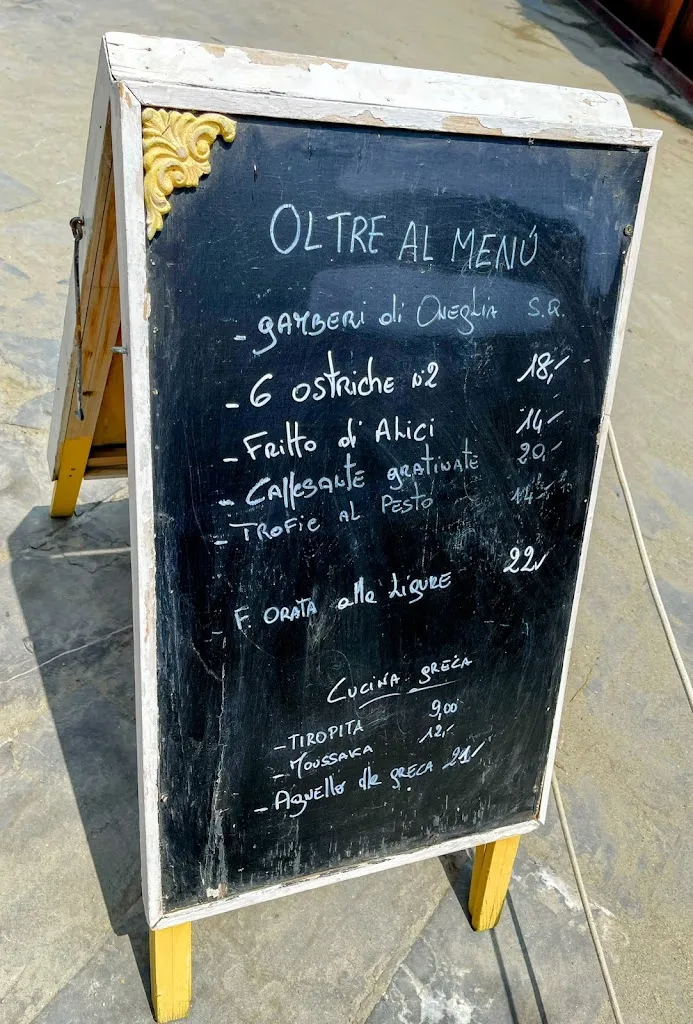 OLTRE AL MENÚ
- GAMBERI di ONEGLIA S.Q.
- 6 OSTRICHE N°2 18,-
- FRITTO di ALICI 14,-
- CAPPESANTE GRATINATE 20,-
- TROFIE AL PESTO 14,-
- F. ORATA alla LIGURE 22,-
CUCINA GRECA
- TIROPITA 9,00
- MOUSSAKA 12,-
- AGNELLO alla GRECA 21,-